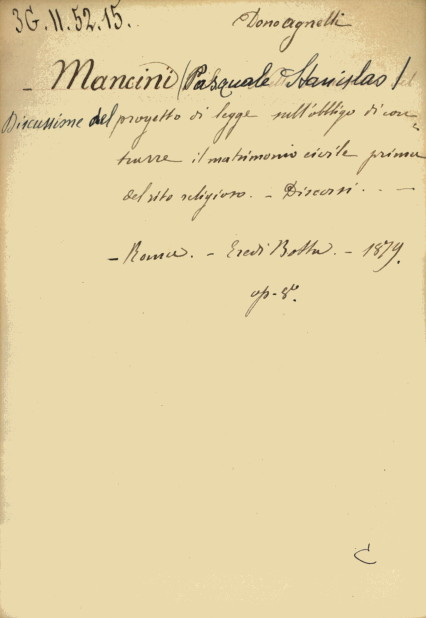 3G.II.52.15. Dono Agnelli
- Mancini (Pasquale Stanislas)
Discussione del progetto di legge sull'obbligo di con-
trarre il matrimonio civile prima
del rito religioso. - Discorsi. . -
- Roma. - Eredi Botta. - 1879.
op-8º.
C